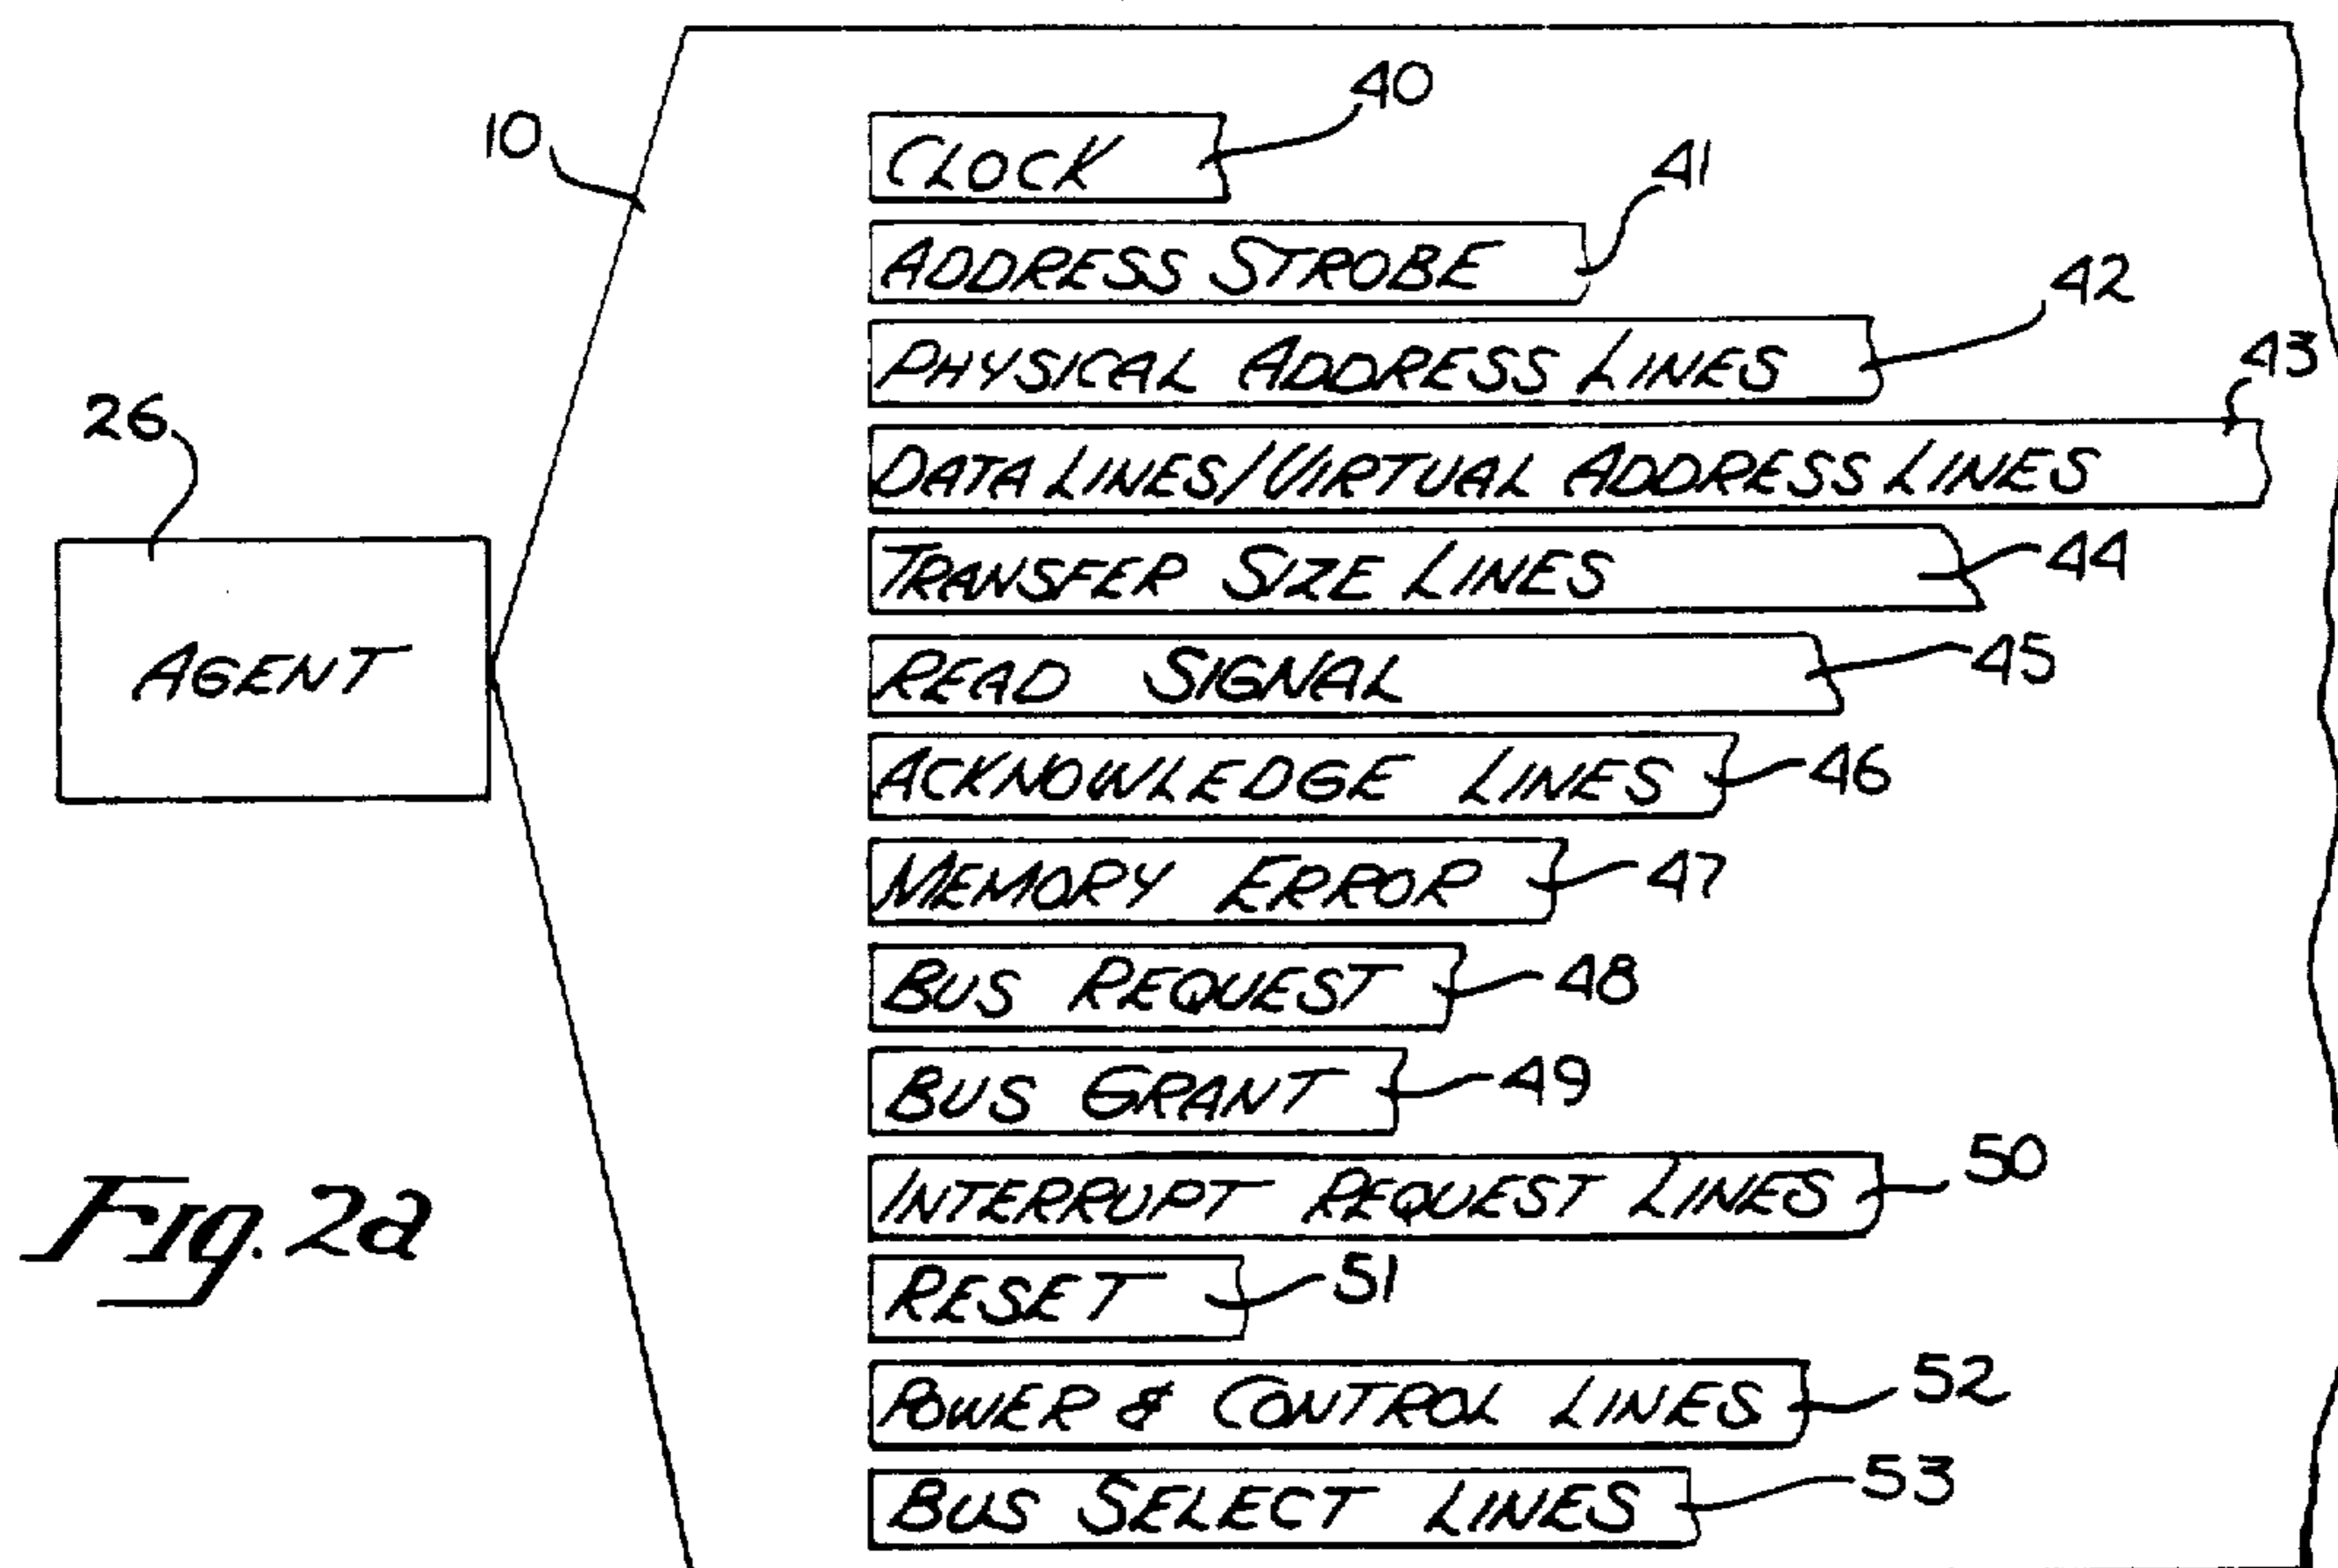 40
10
CLOCK
41
ADDRESS STROBE
42
PHYSICAL ADDRESS LINES
43
26
DATA LINES/VIRTUAL ADDRESS LINES
TRANSFER SIZE LINES
44
AGENT
READ SIGNAL
45
ACKNOWLEDGE LINES
46
MEMORY ERROR
47
BUS REQUEST
48
BUS GRANT
49
INTERRUPT REQUEST LINES
50
Fig. 2a
RESET
51
POWER & CONTROL LINES
52
BUS SELECT LINES
53